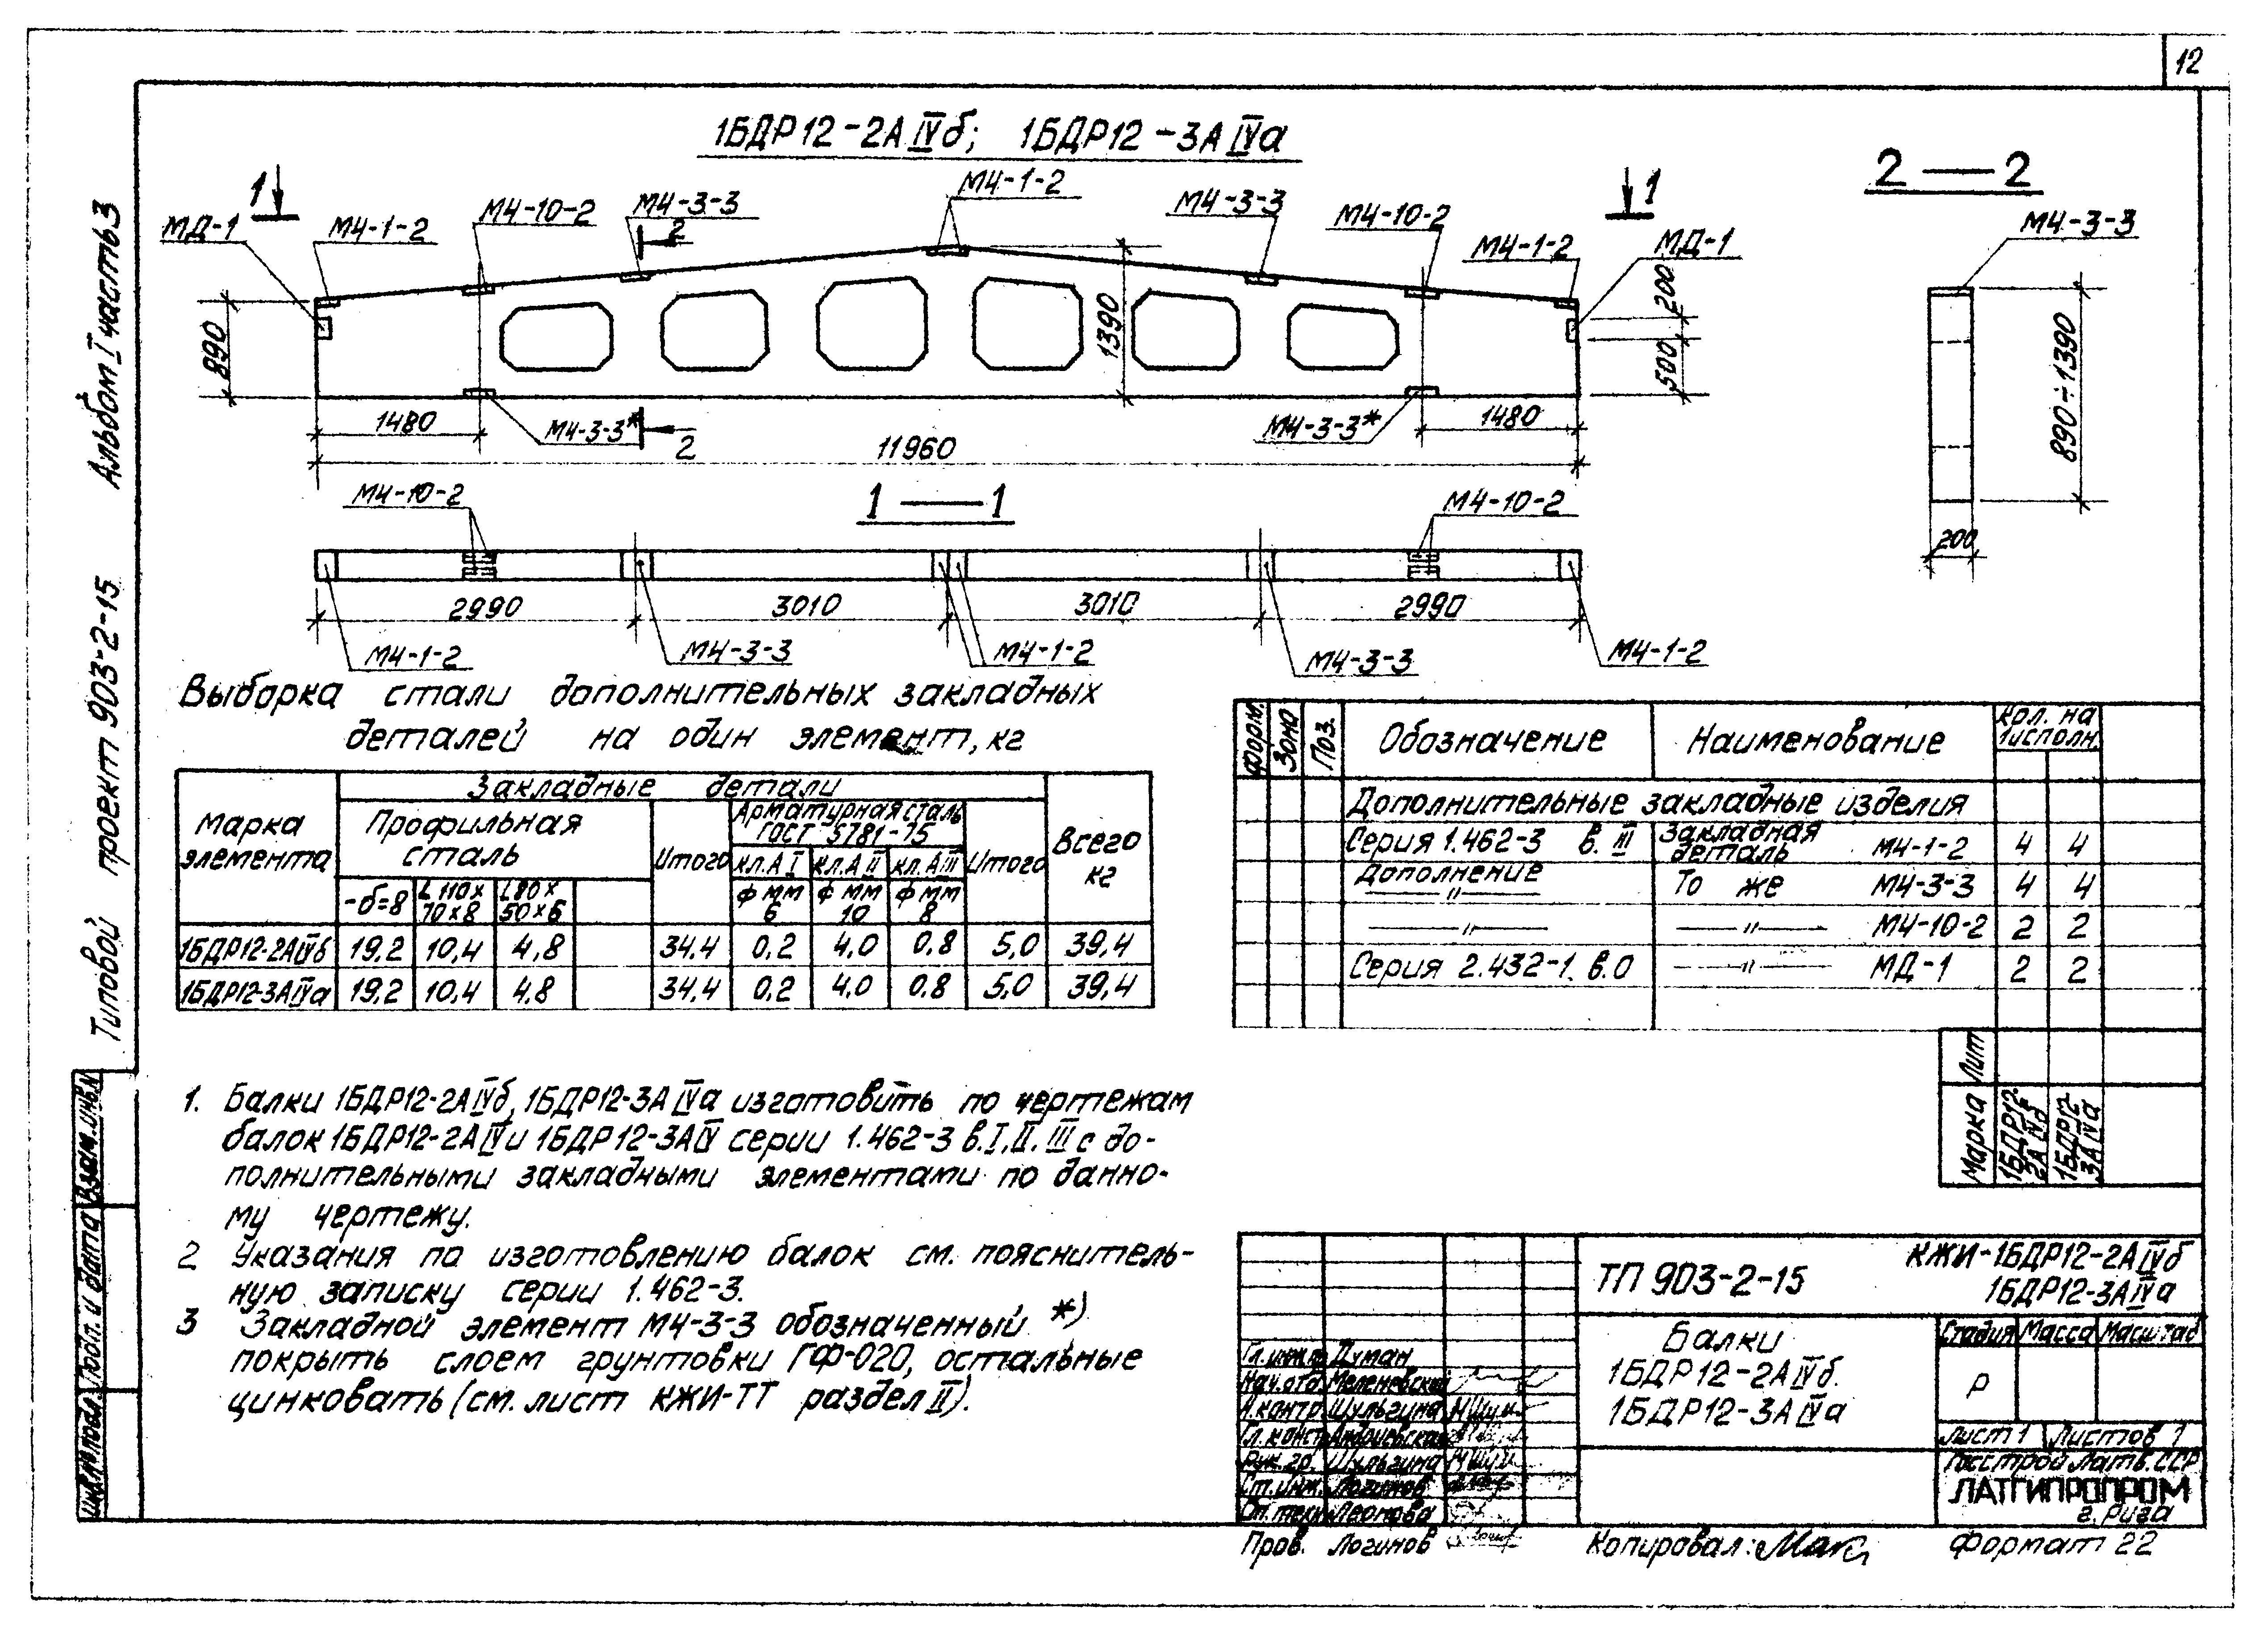 12
1БДР12-2АIVб; 1БДР12-3АIVа
1
МД-1
М4-1-2
М4-10-2
М4-3-3
2
М4-1-2
М4-3-3
М4-10-2
М4-1-2
1
МД-1
2 — 2
М4-3-3
890
1390
200
500
890÷1390
200
1480
М4-3-3*
2
М4-3-3*
1480
11960
1 — 1
М4-10-2
М4-10-2
2990
3010
3010
2990
М4-1-2
М4-3-3
М4-1-2
М4-3-3
М4-1-2
Альбом I часть 3
Типовой проект 903-2-15
Выборка стали дополнительных закладных
деталей на один элемент, кг
Марка элемента
Закладные детали
Профильная сталь
Итого
Арматурная сталь
ГОСТ 5781-75
кл.АI кл.АII кл.АIII
Итого
Всего кг
-δ=8
L 110х70х8
L 80х50х6
ф мм 6
ф мм 10
ф мм 8
1БДР12-2АIVб 19,2 10,4 4,8 34,4 0,2 4,0 0,8 5,0 39,4
1БДР12-3АIVа 19,2 10,4 4,8 34,4 0,2 4,0 0,8 5,0 39,4
Форм. Зона Поз. Обозначение Наименование Кол. на 1исполн.
Дополнительные закладные изделия
Серия 1.462-3 в. III Закладная деталь М4-1-2 4 4
Дополнение
—"— То же М4-3-3 4 4
—"— —"— М4-10-2 2 2
Серия 2.432-1. в.0 —"— МД-1 2 2
Лит
Марка
1БДР12-2АIVб
1БДР12-3АIVа
1. Балки 1БДР12-2АIVб, 1БДР12-3АIVа изготовить по чертежам
балок 1БДР12-2АIV и 1БДР12-3АIV серии 1.462-3 в.I,II.III с до-
полнительными закладными элементами по данно-
му чертежу.
2 Указания по изготовлению балок см. пояснитель-
ную записку серии 1.462-3.
3 Закладной элемент М4-3-3 обозначенный *)
покрыть слоем грунтовки ГФ-020, остальные
цинковать (см. лист КЖИ-ТТ раздел II).
Взам.инв.N
Подп. и дата
Инв.N подл.
ТП 903-2-15
КЖИ-1БДР12-2АIVб
1БДР12-3АIVа
Балки
1БДР12-2АIVб.
1БДР12-3АIVа
Стадия Масса Масштаб
Р
Лист 1 Листов 1
Госстрой Латв.ССР
ЛАТГИПРОПРОМ
г. Рига
Гл.инж.пр. Думан
Нач.отд. Меленевский
Н.контр. Шульгина
Гл.конст.
Рук.гр. Шульгина
Ст.инж. Логинов
Ст.техн. Леонова
Пров. Логинов
Копировал:
Формат 22